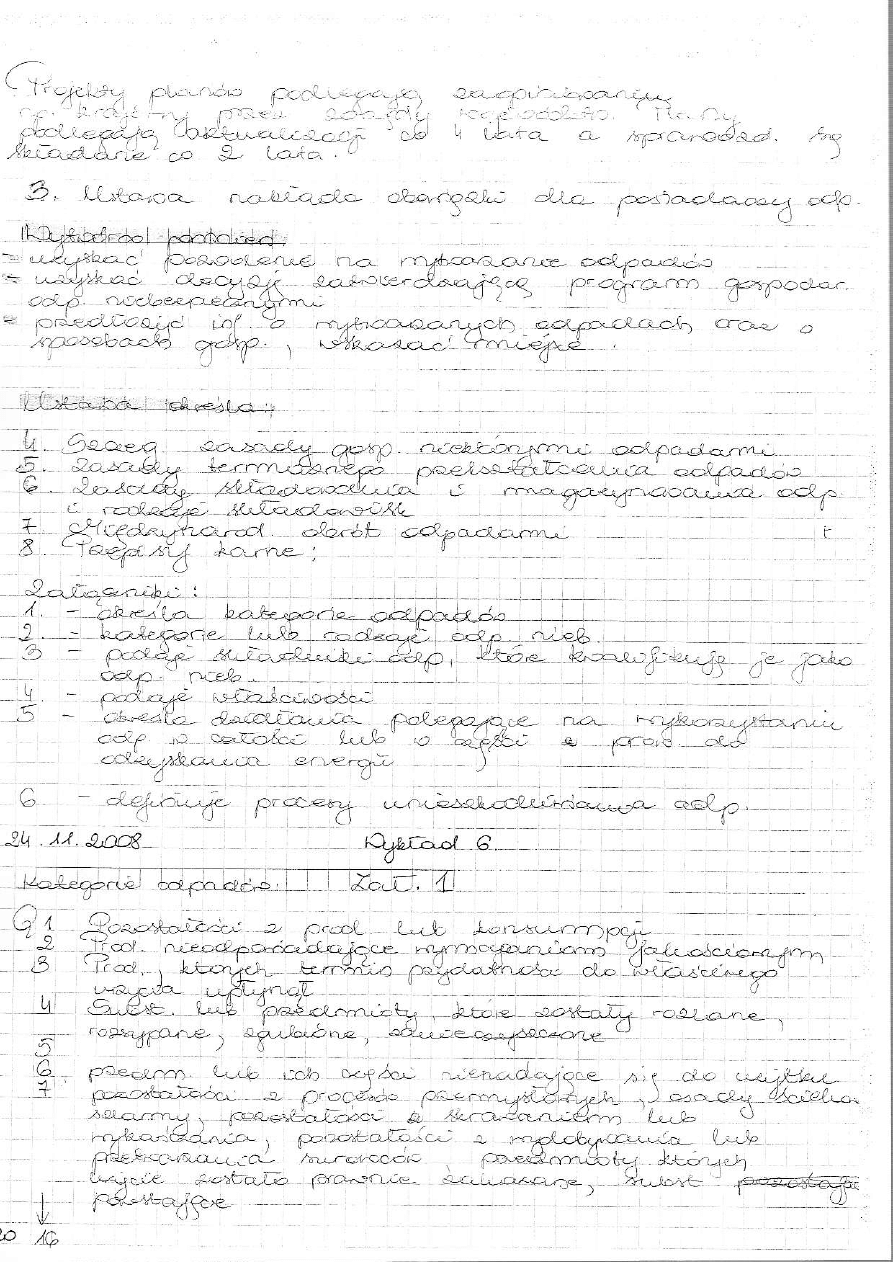 Projekty planów podlegają zaopiniowaniu
np. krajowy przez zarządy województw. Plany
podlegają aktualizacji co 4 lata a sprawozd. są
składane co 2 lata.
3. Ustawa nakłada obowiązki dla posiadaczy odp.
- uzyskać pozwolenie na wytwarzanie odpadów
- uzyskać decyzję zatwierdzającą program gospodar.
odp. niebezpiecznymi
- przedłożyć inf. o wytwarzanych odpadach oraz o
sposobach gosp., wskazać miejsce.
Ustawa określa:
4. Szczeg. zasady gosp. niektórymi odpadami
5. Zasady termicznego przekształcania odpadów
6. Zasady składowania i magazynowania odp.
i rodzaje składowisk
7 Międzynarod. obrót odpadami
8. Przepisy karne:
Załączniki:
1. - określa kategorie odpadów
2. - kategorie lub rodzaje odp. nieb.
3 - podaje składniki odp, które kwalifikują je jako
odp. nieb.
4 - podaje właściwości
5 - określa działania polegające na wykorzystaniu
odp w całości lub w części z prow do
odzyskania energii
6 - definiuje procesy unieszkodliwiania odp.
24.11.2008 Wykład 6
Kategorie odpadów Zał. 1
Q 1 Pozostałości z prod lub konsumpcji
2 Prod. nieodpowiadające wymaganiom jakościowym
3 Prod., których termin przydatności do właściwego
użycia upłynął
4 Subst. lub przedmioty, które zostały rozlane,
rozsypane, zgubione, zanieczyszczone
5
6 przedm lub ich części nienadające się do użytku
7. pozostałości z procesów przemysłowych,
szlamy, pozostałości z skrawaniem lub
wykańczania, pozostałości z wydobywania lub
przetwarzania surowców, przedmioty których
użycie zostało prawnie zakazane, subst pozostające
pozostające
20 16